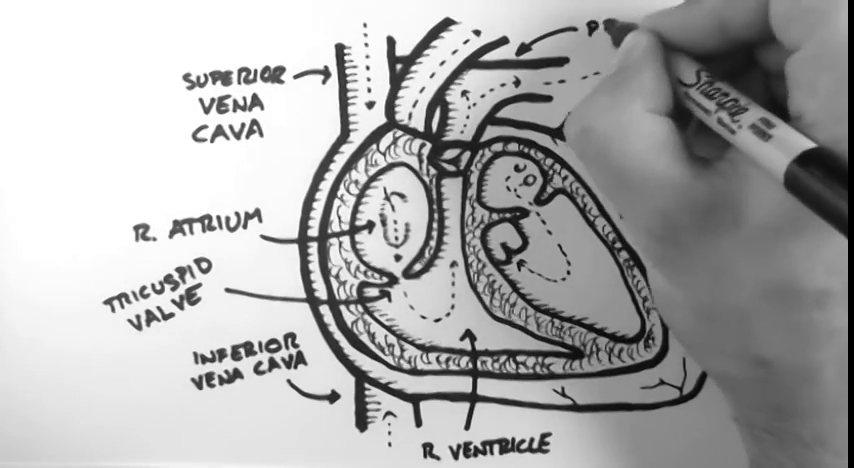 SUPERIOR
VENA
CAVA
P
R. ATRIUM
TRICUSPID
VALVE
INFERIOR
VENA CAVA
R. VENTRICLE
Sharpie